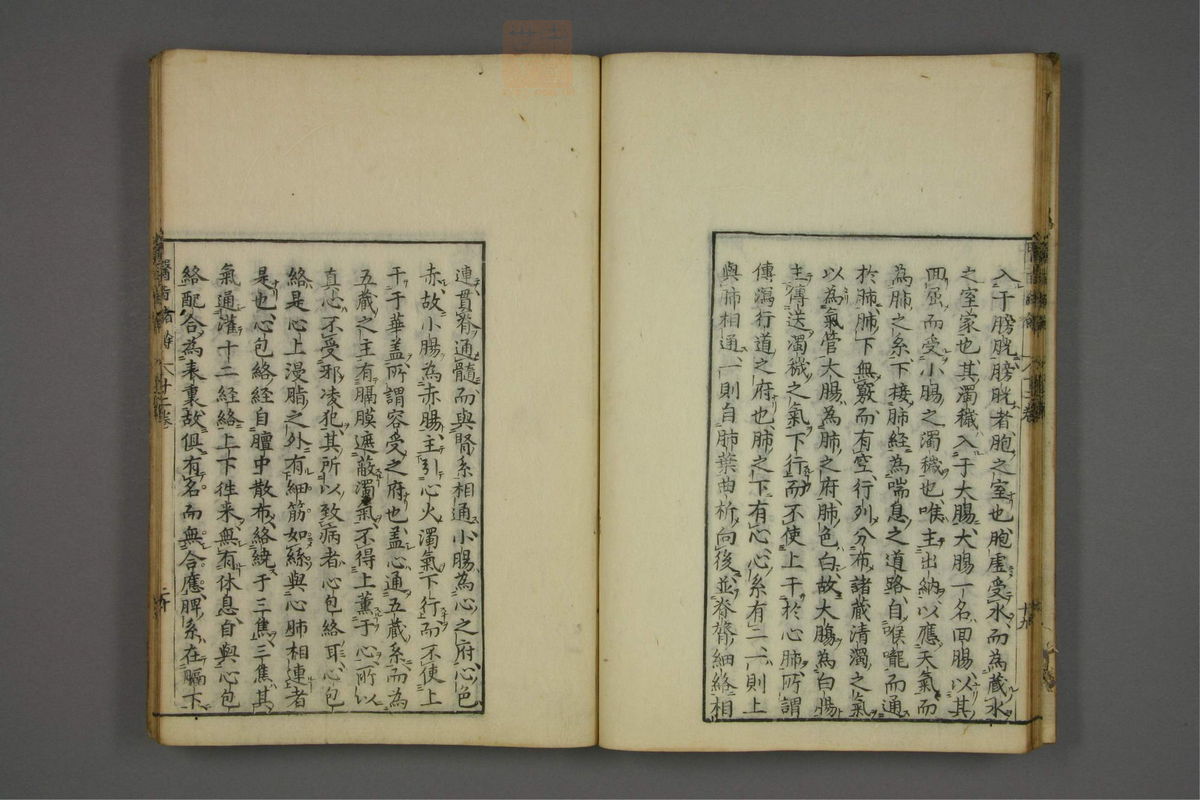 入于膀胱膀胱者胞之室也胞虚受水而為蔵水
之室家也其濁穢入于大腸大腸一名回腸以其
回屈而受小腸之濁穢也喉主出納以應天氣而
為肺之系下接肺經為喘息之道路自喉嚨而通
於肺肺下無竅而有空行列分布諸蔵清濁之氣
以為氣管大腸為肺之府肺色白故大腸為白腸
主傳送濁穢之氣下行而不使上干於心肺所謂
傳瀉行道之府也肺之下有心心系有二一則上
與肺相通一則自肺葉曲折向後並脊膂細絡相
連貫脊通髓而與腎系相通小腸為心之府心色
赤故小腸為赤腸主引心火濁氣下行而不使上
干于華盖所謂容受之府也盖心通五蔵系而為
五蔵之主有膈膜遮蔽濁氣不得上薫于心所以
真心不受邪凌犯其所以致病者心包絡耳心包
絡是心上漫脂之外有細筋如絲與心肺相連者
是也心包絡經自膻中散布絡繞于三焦三焦其
氣通灌十二經絡上下徃来無有休息自與心包
絡配合為表裏故俱有名而無合應脾系在膈下